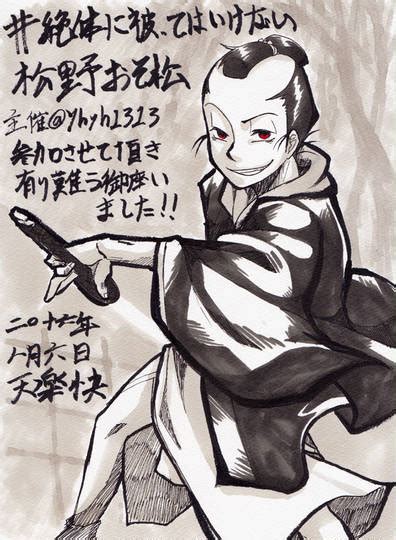 #絶体に被ってはいけない
松野おそ松
主催@yhyh1313
参加させて頂き
有り難う御座い
ました!!
二〇十六年
八月六日
天楽快